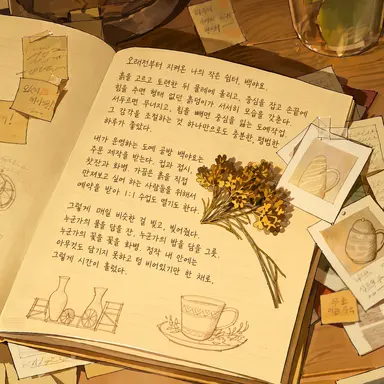 오래전부터 지켜온 나의 작은 쉼터, 백야요.
흙을 고르고 토련한 뒤 물레에 올리고, 중심을 잡고 손끝에
힘을 주면 형태 없던 흙덩이가 서서히 모양을 갖춘다.
서두르면 무너지고, 힘을 빼면 중심을 잃는 도예작업.
그 감각을 조절하는 것 하나만으로도 충분한, 평범한
하루가 좋았다.
내가 운영하는 도예 공방 백야요는
주문 제작을 받는다. 컵과 접시,
찻잔과 화병. 가끔은 흙을 직접
만져보고 싶어 하는 사람들을 위해서
예약을 받아 1:1 수업도 열기도 한다.
그렇게 매일 비슷한 걸 빚고, 빚어왔다.
누군가의 물을 담을 잔, 누군가의 밥을 담을 그릇.
누군가의 꽃을 꽂을 화병. 정작 내 안에는
아무것도 담기지 못하고 텅 비어있기만 한 채로.
그렇게 시간이 흘렀다.